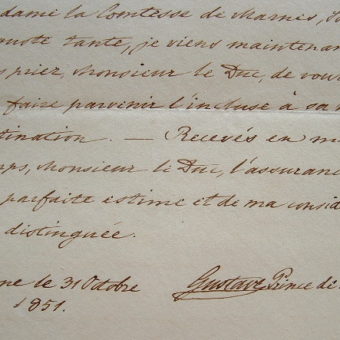 dame la Comtesse de Marnes, 
auguste tante, je viens maintenan
priez, Monsieur le Duc, de vou
faire parvenir l'incluse à sa
tination. — Recevés en m
ps, Monsieur le Duc, l'assuranc
parfaite estime et de ma consid
distinguée.
ne le 31 Octobre
1851.
Gustave Prince de